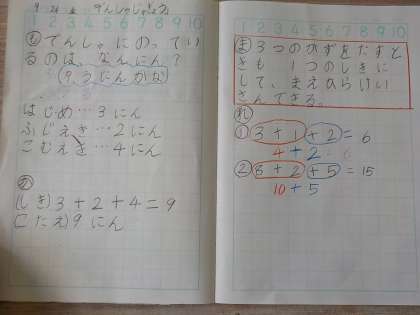 1 2 3 4 5 6 7 8 9 10
も でんしゃにのってい
るのは、なんにん?
(9にんかな)
はじめ…3にん
ふじえき…2にん
こむえき…4にん
か
(しき)3+2+4=9
(こたえ)9にん
1 2 3 4 5 6 7 8 9 10
ま 3つのかずをたすと
きも1つのしきに
して、まえからけい
さんできる。
れ
① 3+1+2=6
4+2
② 8+2+5=15
10+5